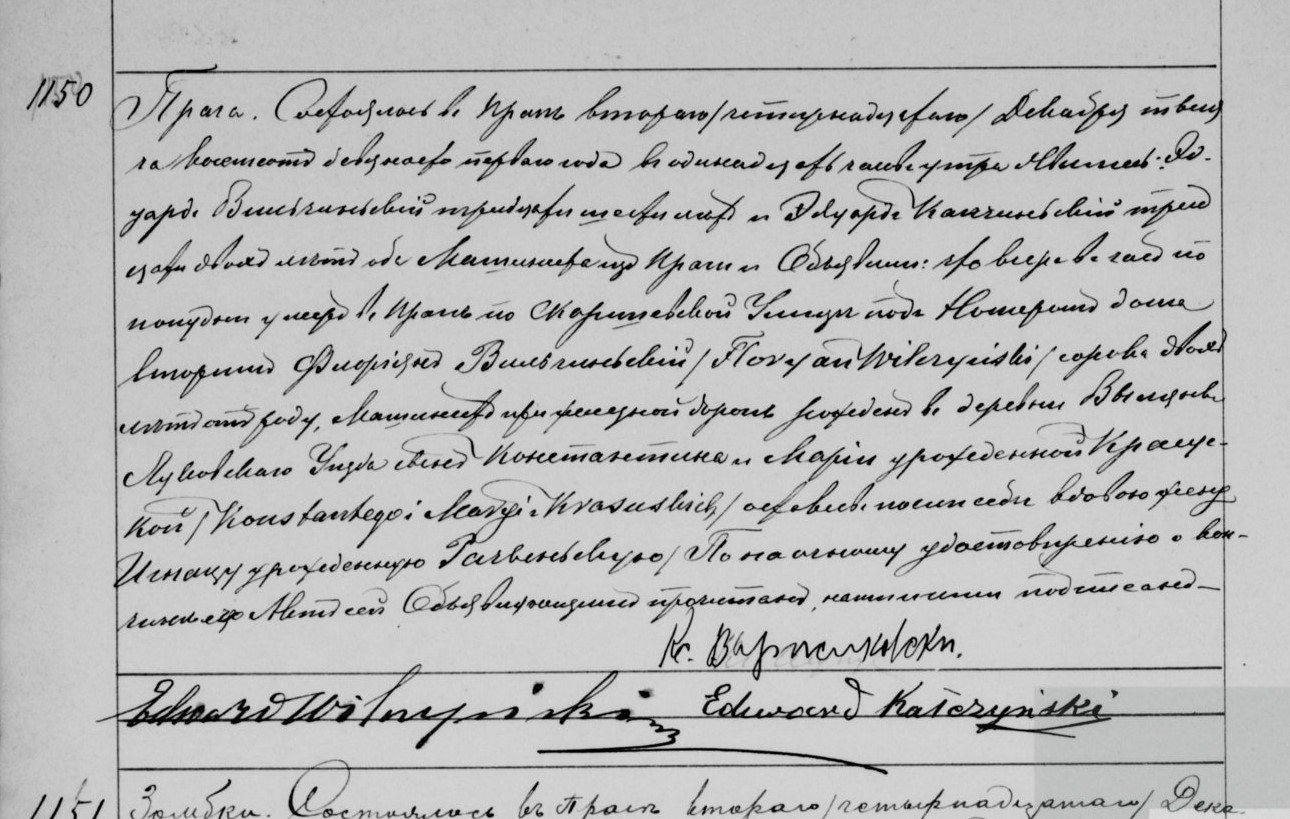 1150
Прага. Состоялось въ Прагѣ втораго /четырнадцатаго/ Декабря тыся
ча восемсотъ девяносто перваго года въ одинадцать часовъ утра. Явились: Эд-
уардъ Вильчинскій тридцати шести лѣтъ и Эдуардъ Калчинскій трид
цати двохъ лѣтъ оба Машинисты изъ Праги и Объявили: что вчера въ часъ по
полудни умеръ въ Прагѣ по Улицы подъ Номеромъ дома
вторымъ Флоріянъ Вильчинскій /Floryan Wilczyński/ сорока двохъ
лѣтъ отъ роду, Машинистъ при желѣзной дорогѣ рожденъ въ деревни
Луковскаго Уѣзда сынъ Константина и Маріи урожденной Красус-
кой /Konstantego i Maryi z Krasuskich/ оставивъ послѣ себя вдовою жену
Игнацу урожденную По наочному удостовѣренію о кон-
чинѣ его Актъ сей Объявляющимъ прочитанъ, нами ими подписанъ —
К.
Edward Wilczyński Edward Kałczyński
1151 Зомбки. Состоялось въ Прагѣ втораго /четырнадцатаго/ Дека-